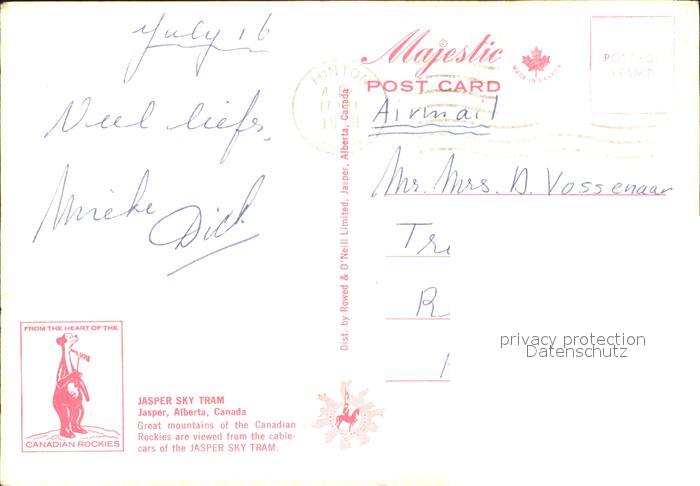 July 16
Veel liefs,
Mieke
Dick
Majestic
MADE IN CANADA
POST CARD
Airmail
Mr. Mrs. D. Vossenaar
Tr
R
POSTAGE
STAMP
HINTON
Dist. by Rowed & O'Neill Limited, Jasper, Alberta, Canada
privacy protection
Datenschutz
FROM THE HEART OF THE
CANADIAN ROCKIES
JASPER SKY TRAM
Jasper, Alberta, Canada
Great mountains of the Canadian
Rockies are viewed from the cable-
cars of the JASPER SKY TRAM.